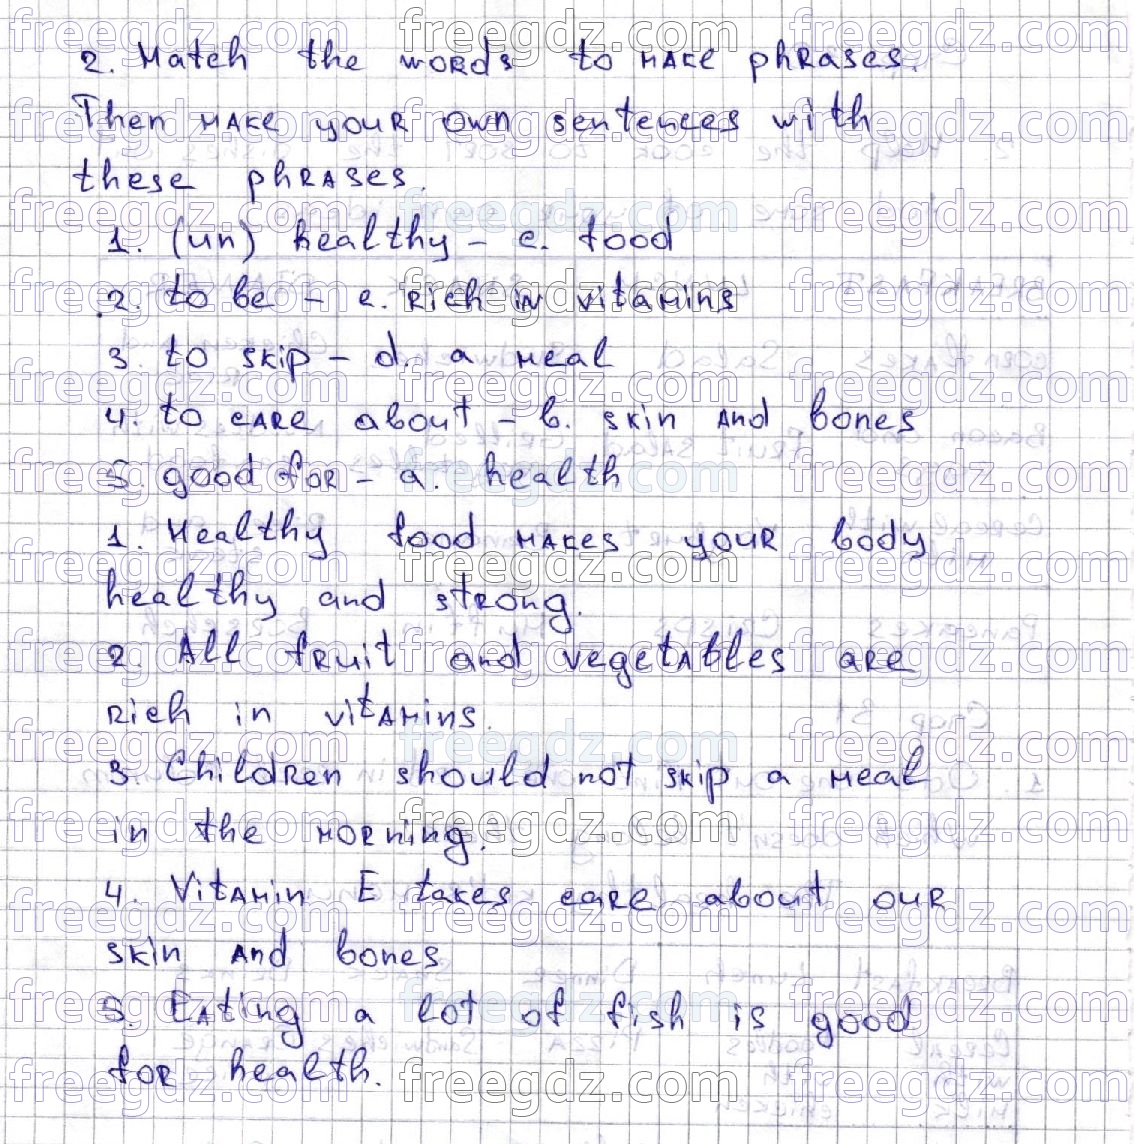 2. Match the words to make phrases.
Then make your own sentences with
these phrases.
1. (un) healthy – e. food
2. to be – c. rich in vitamins
3. to skip – d. a meal
4. to care about – b. skin and bones
5. good for – a. health
1. Healthy food makes your body
healthy and strong.
2. All fruit and vegetables are
rich in vitamins.
3. Children should not skip a meal
in the morning.
4. Vitamin E takes care about our
skin and bones
5. Eating a lot of fish is good
for health.
freegdz.com